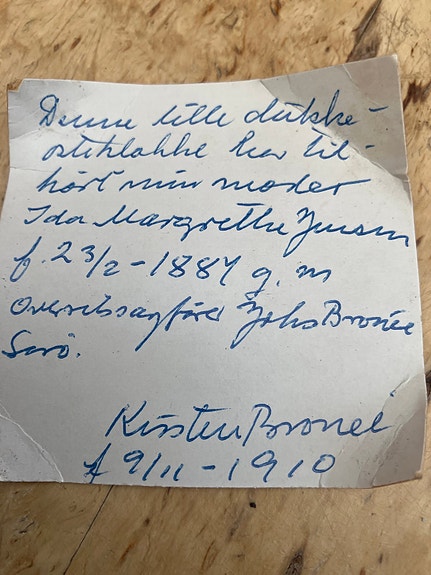 Denne lille dukke-
osteklokke har til-
hørt min moder
Ida Margrethe Jensen
f. 23/2 - 1887 g. m
Overretssagfører Johs Bronée
Sorø.
Kirsten Bronée
f 9/11 - 1910